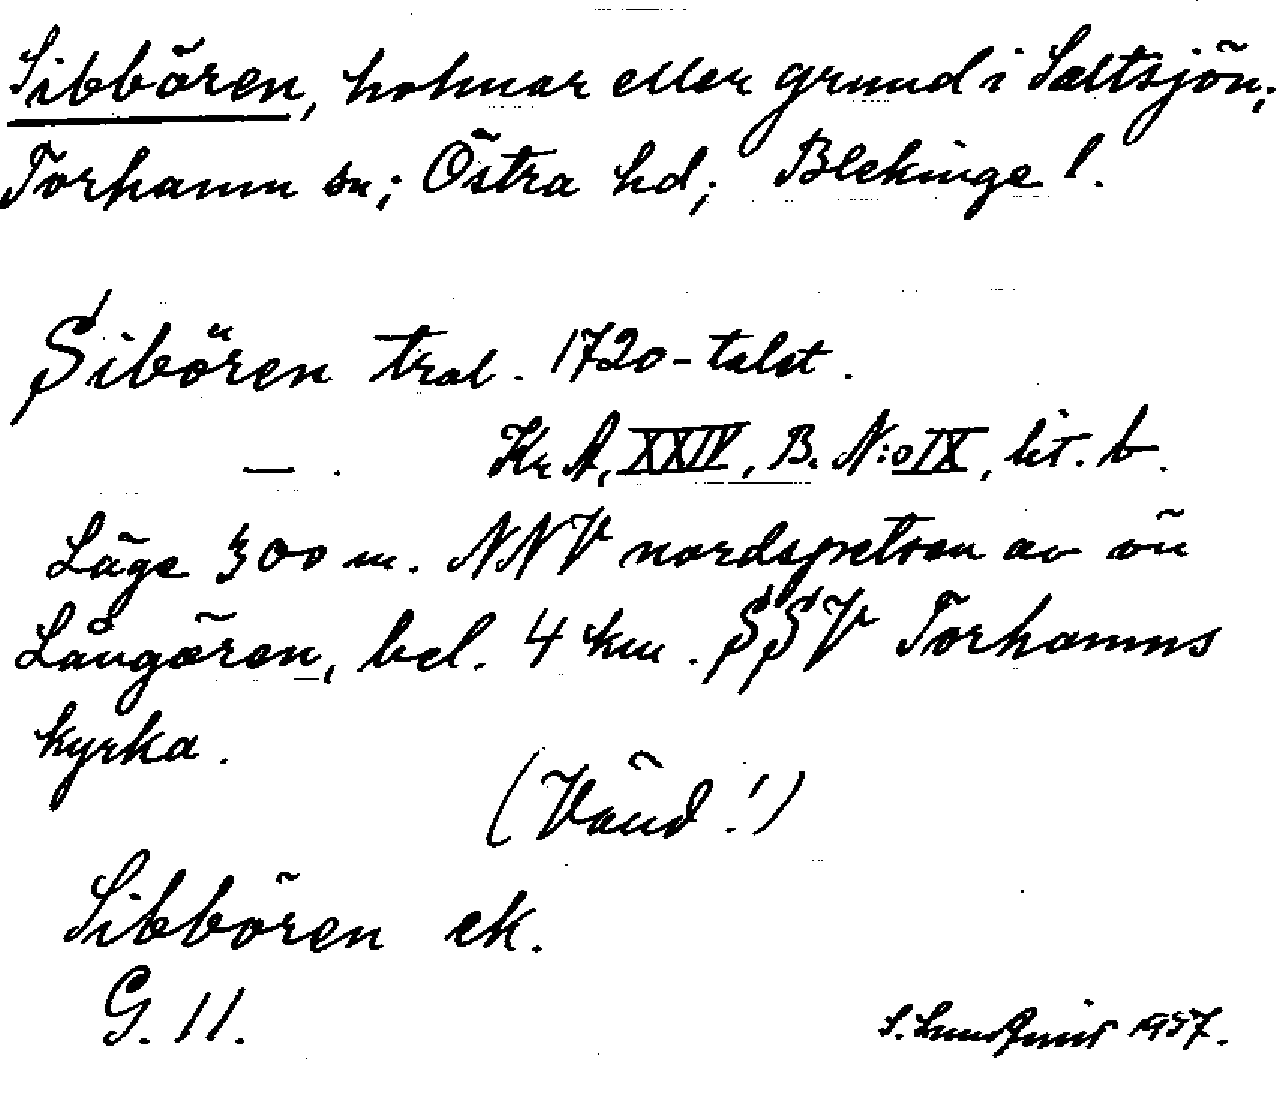 Sibbören, holmar eller grund i Saltsjön;
Torhamn sn; Östra hd; Blekinge l.
Sibören trol. 1720-talet.
— . Kr A, XXIV, B. N:o IX, lit. b.
Läge 300 m. NNV nordspetsen av ön
Långören, bel. 4 km. SSV Torhamns
kyrka.
(Vänd!)
Sibbören ek.
G. 11.
S. Lundqvist 1957.